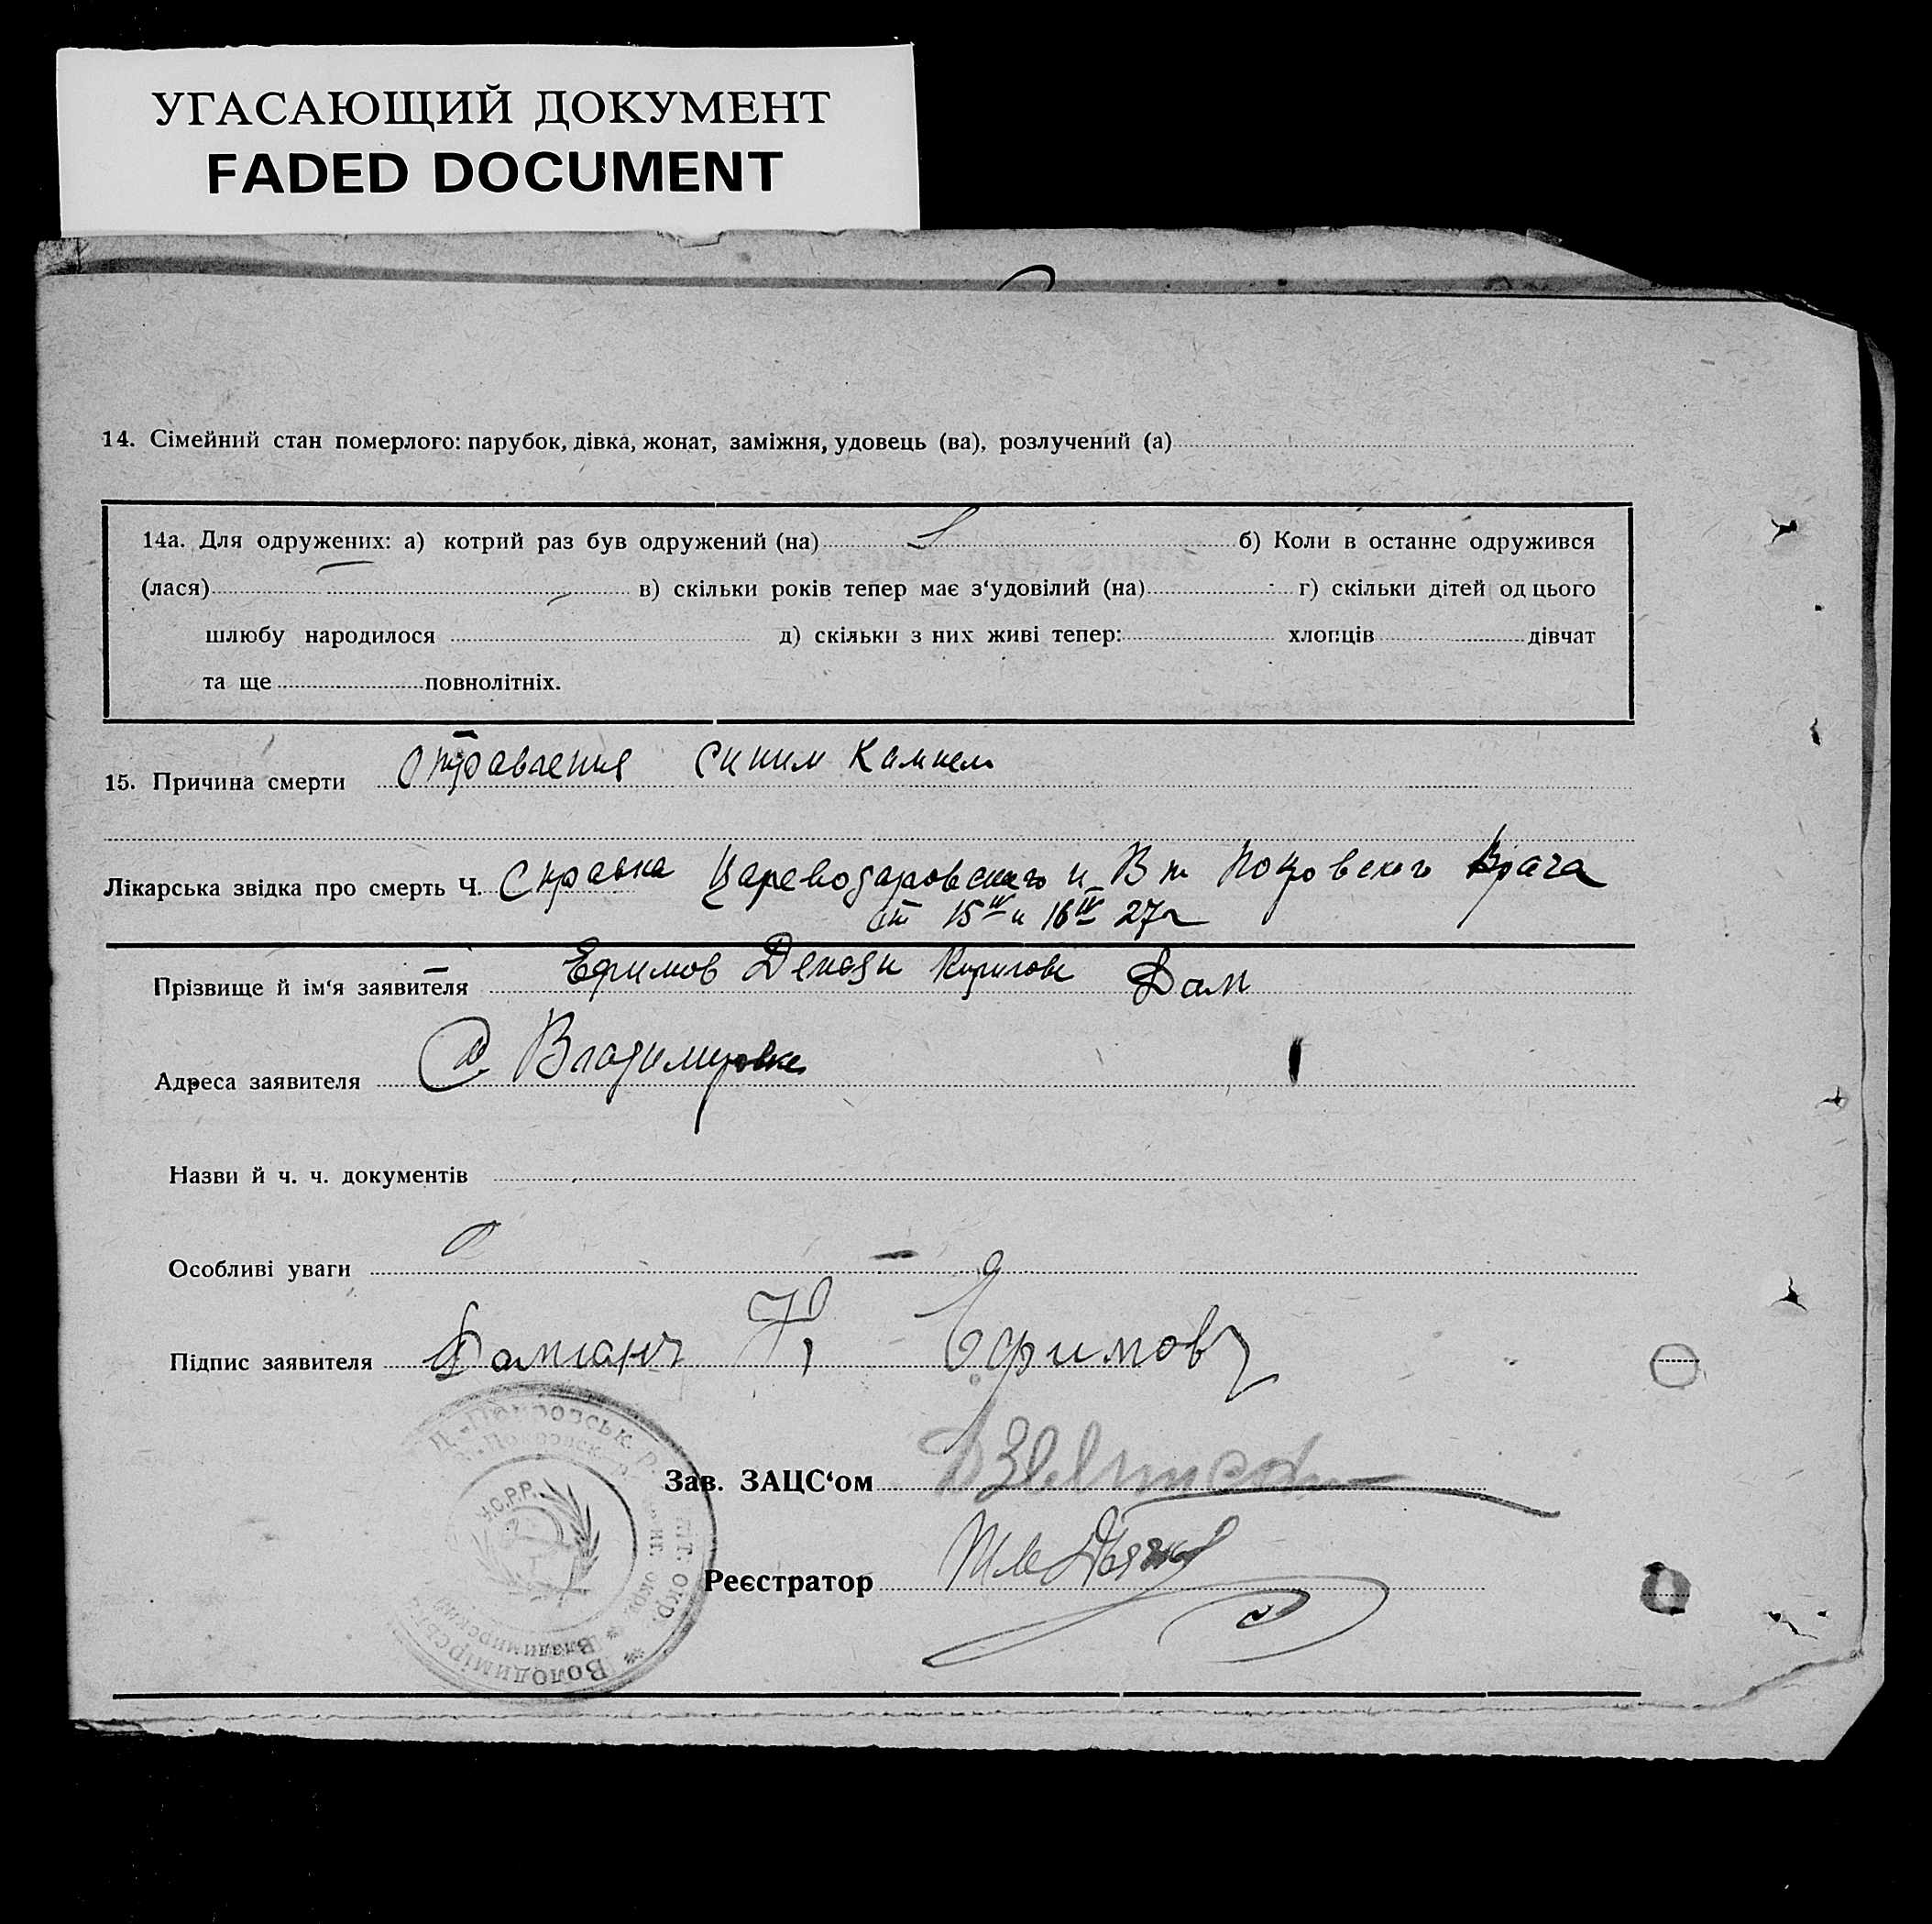 УГАСАЮЩИЙ ДОКУМЕНТ
FADED DOCUMENT
14. Сімейний стан померлого: парубок, дівка, жонат, заміжня, удовець (ва), розлучений (а)
14а. Для одружених: а) котрий раз був одружений (на) б) Коли в останне одружився
(лася) в) скільки років тепер має з‘удовілий (на) г) скільки дітей од цього
шлюбу народилося д) скільки з них живі тепер: хлопців дівчат
та ще повнолітніх.
15. Причина смерти Отравления синим Камнем
Лікарська звідка про смерть Ч. Справка Цареводаровского и В Покровского Врача
от 15 IV и 16 IV 27 г
Прізвище й ім‘я заявителя Ефимов
Адреса заявителя Владимировка
Назви й ч. ч. документів
Особливі уваги
Підпис заявителя Ефимовъ
Зав. ЗАЦС‘ом
Реєстратор
У.С.Р.Р.